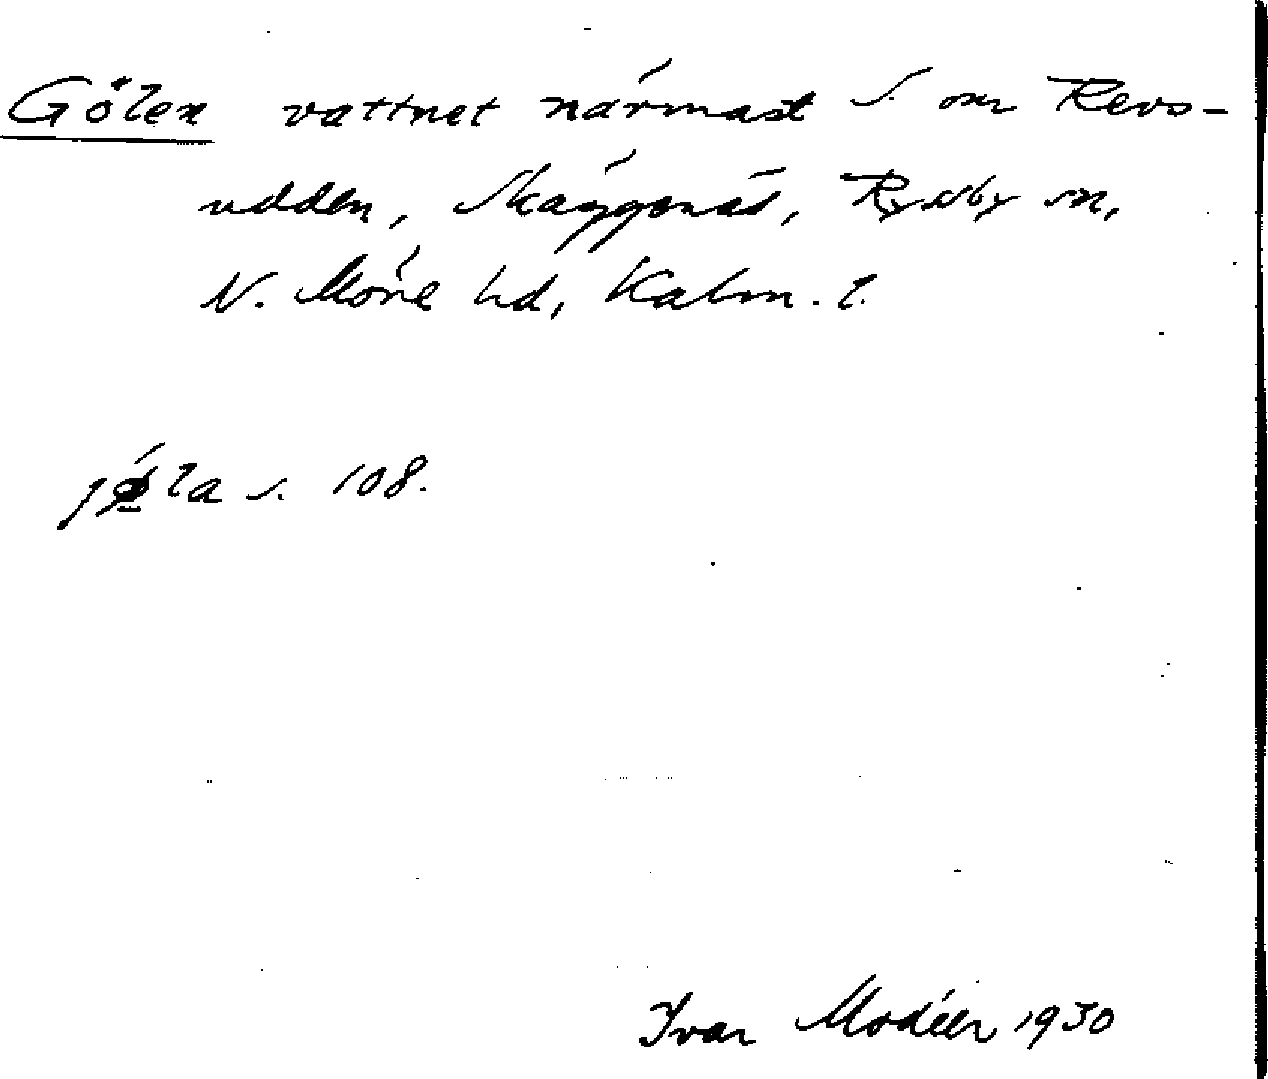 Gölen vattnet närmast S. om Revs-
udden, Skäggenäs, Ryssby sn,
N. Möre hd, Kalm. l.
s. 108.
Ivar Modéer 1930